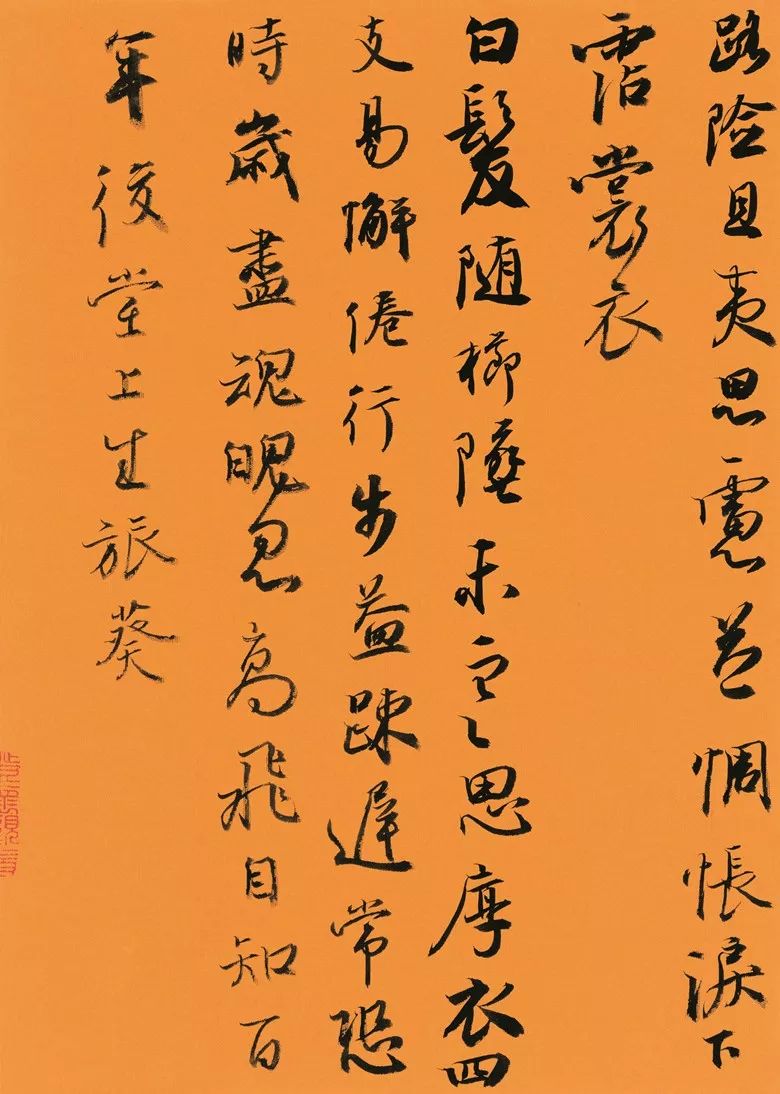 路險且夷思慮益惆悵淚下
霑裳衣
白髮随櫛墮未寒思厚衣四
支易懈倦行步益踈遲常恐
時歲盡魂魄忽高飛自知百
年後堂上生旅葵